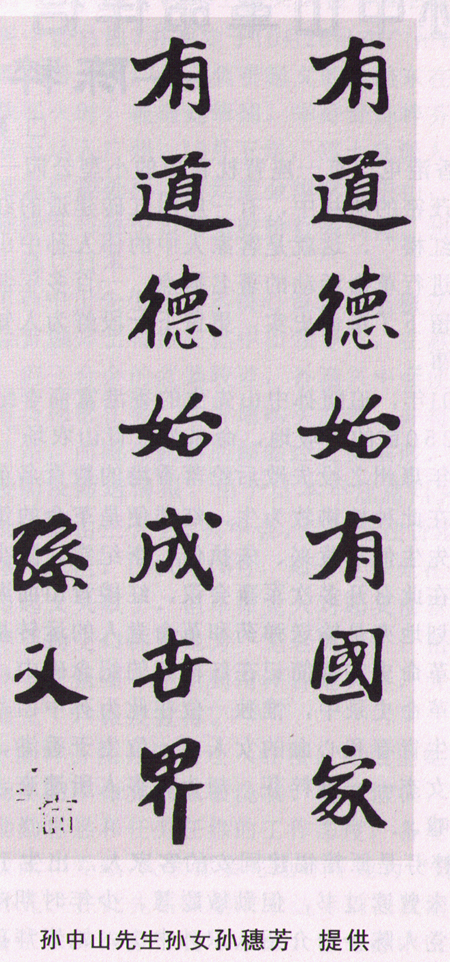 有道德始有國家
有道德始成世界
孫文
孙中山先生孙女孙穗芳 提供